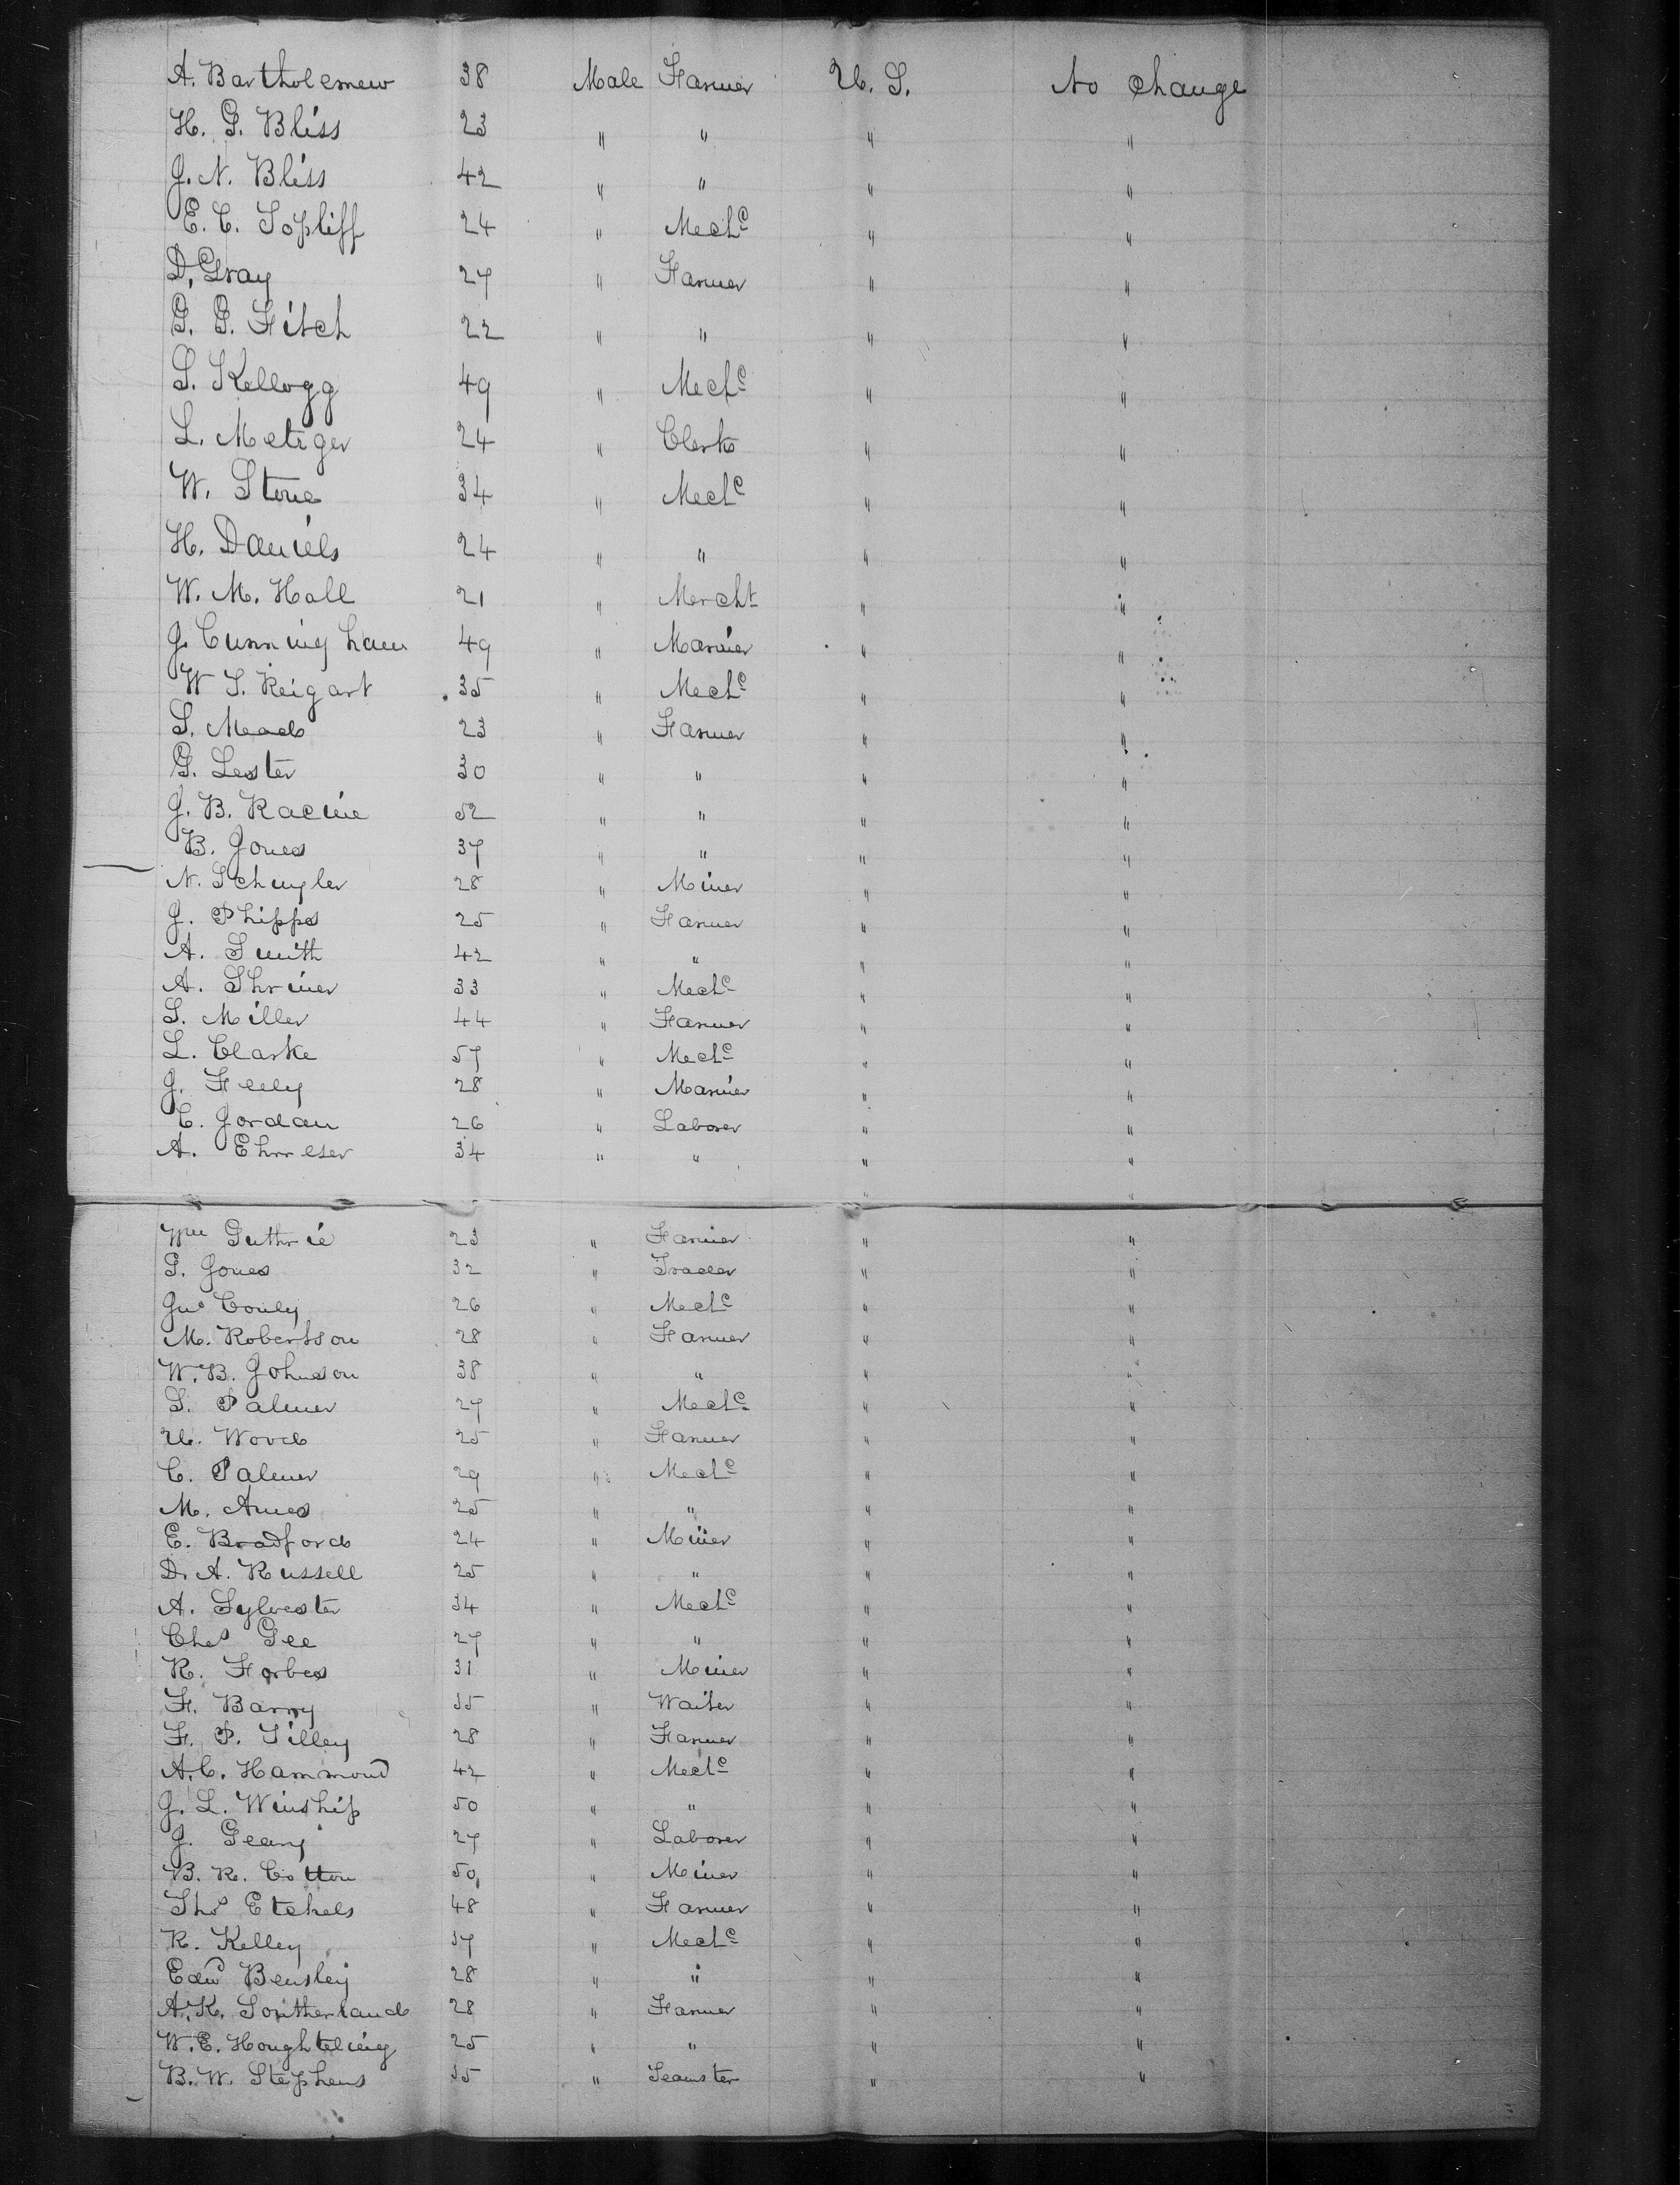 A. Bartholemew 38 Male Farmer U. S. No change
H. G. Bliss 23 " " " "
J. N. Bliss 42 " " " "
E. C. Topliff 24 " Mechc " "
D. Gray 27 " Farmer " "
G. G. Fitch 22 " " " "
S. Kellogg 49 " Mechc " "
L. Metzger 24 " Clerk " "
W. Stone 34 " Mechc " "
H. Daniels 24 " " " "
W. M. Hall 21 " Mercht " "
J. Cunningham 49 " Marier " "
W S. Reigart 35 " Mechc " "
S. Mead 23 " Farmer " "
G. Lester 30 " " " "
J. B. Racine 52 " " " "
B. Jones 37 " " " "
N. Schuyler 28 " Miner " "
J. Phipps 25 " Farmer " "
A. Smith 42 " " " "
A. Shriner 33 " Mechc " "
S. Miller 44 " Farmer " "
L. Clarke 57 " Mechc " "
J. Feely 28 " Marier " "
C. Jordan 26 " Laborer " "
A. 34 " " " "
Wm Guthrie 23 " Farmer " "
G. Jones 32 " Trader " "
Jno Conly 26 " Mechc " "
M. Robertson 28 " Farmer " "
W. B. Johnson 38 " " " "
S. Palmer 27 " Mechc " "
U. Wood 25 " Farmer " "
C. Palmer 29 " Mechc " "
M. Ames 25 " " " "
E. Bradford 24 " Miner " "
D. A. Russell 25 " " " "
A. Sylvester 34 " Mechc " "
Chas Gee 27 " " " "
R. Forbes 31 " Miner " "
F. Barry 35 " Waiter " "
F. P. Tilley 28 " Farmer " "
A. C. Hammond 42 " Mechc " "
J. L. Winship 50 " " " "
J. Geary 27 " Laborer " "
B. R. Cotton 50 " Miner " "
Thos Etchels 48 " Farmer " "
R. Kelley 37 " Mechc " "
Edwd Bensley 28 " " " "
A. K. Southerland 28 " Farmer " "
W. E. Houghteling 25 " " " "
B. W. Stephens 35 " Teamster " "